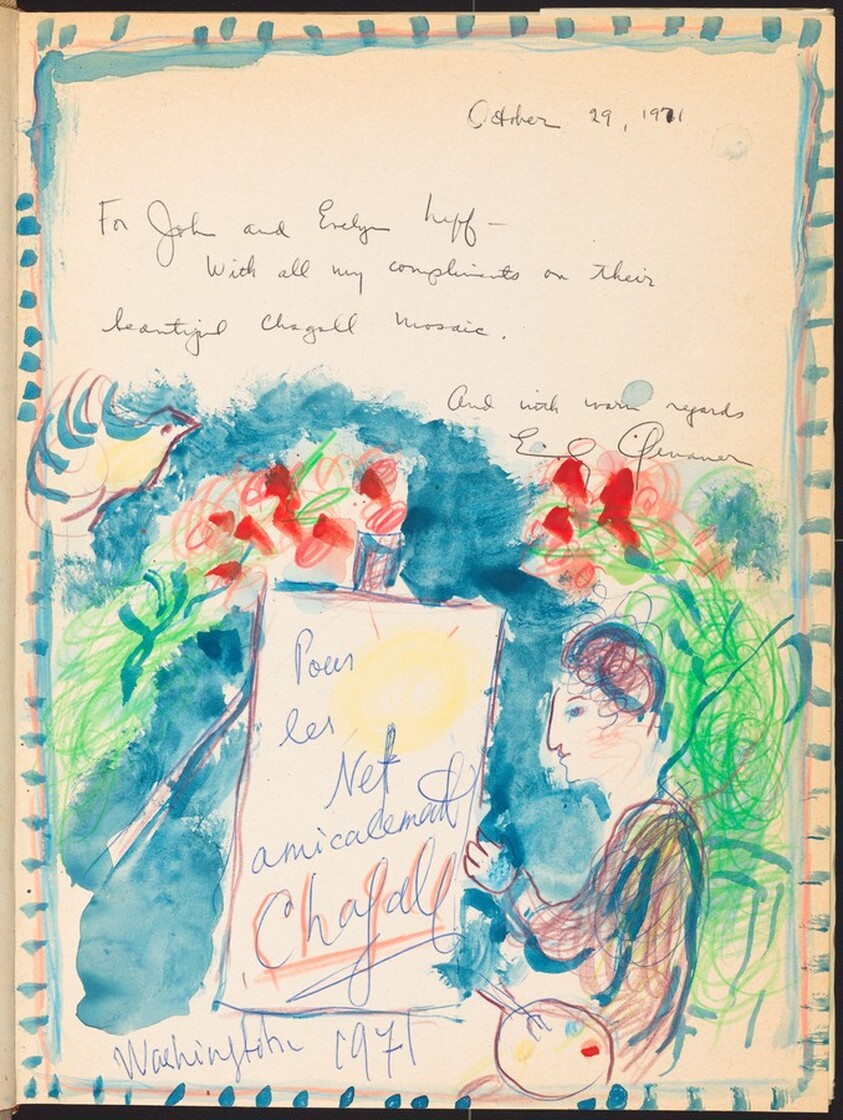 October 29, 1971
For John and Evelyn Neff —
With all my compliments on their
beautiful Chagall Mosaic.
And with warm regards
Genauer
Pour
les
Nef
amicalement
Chagall
Washington 1971